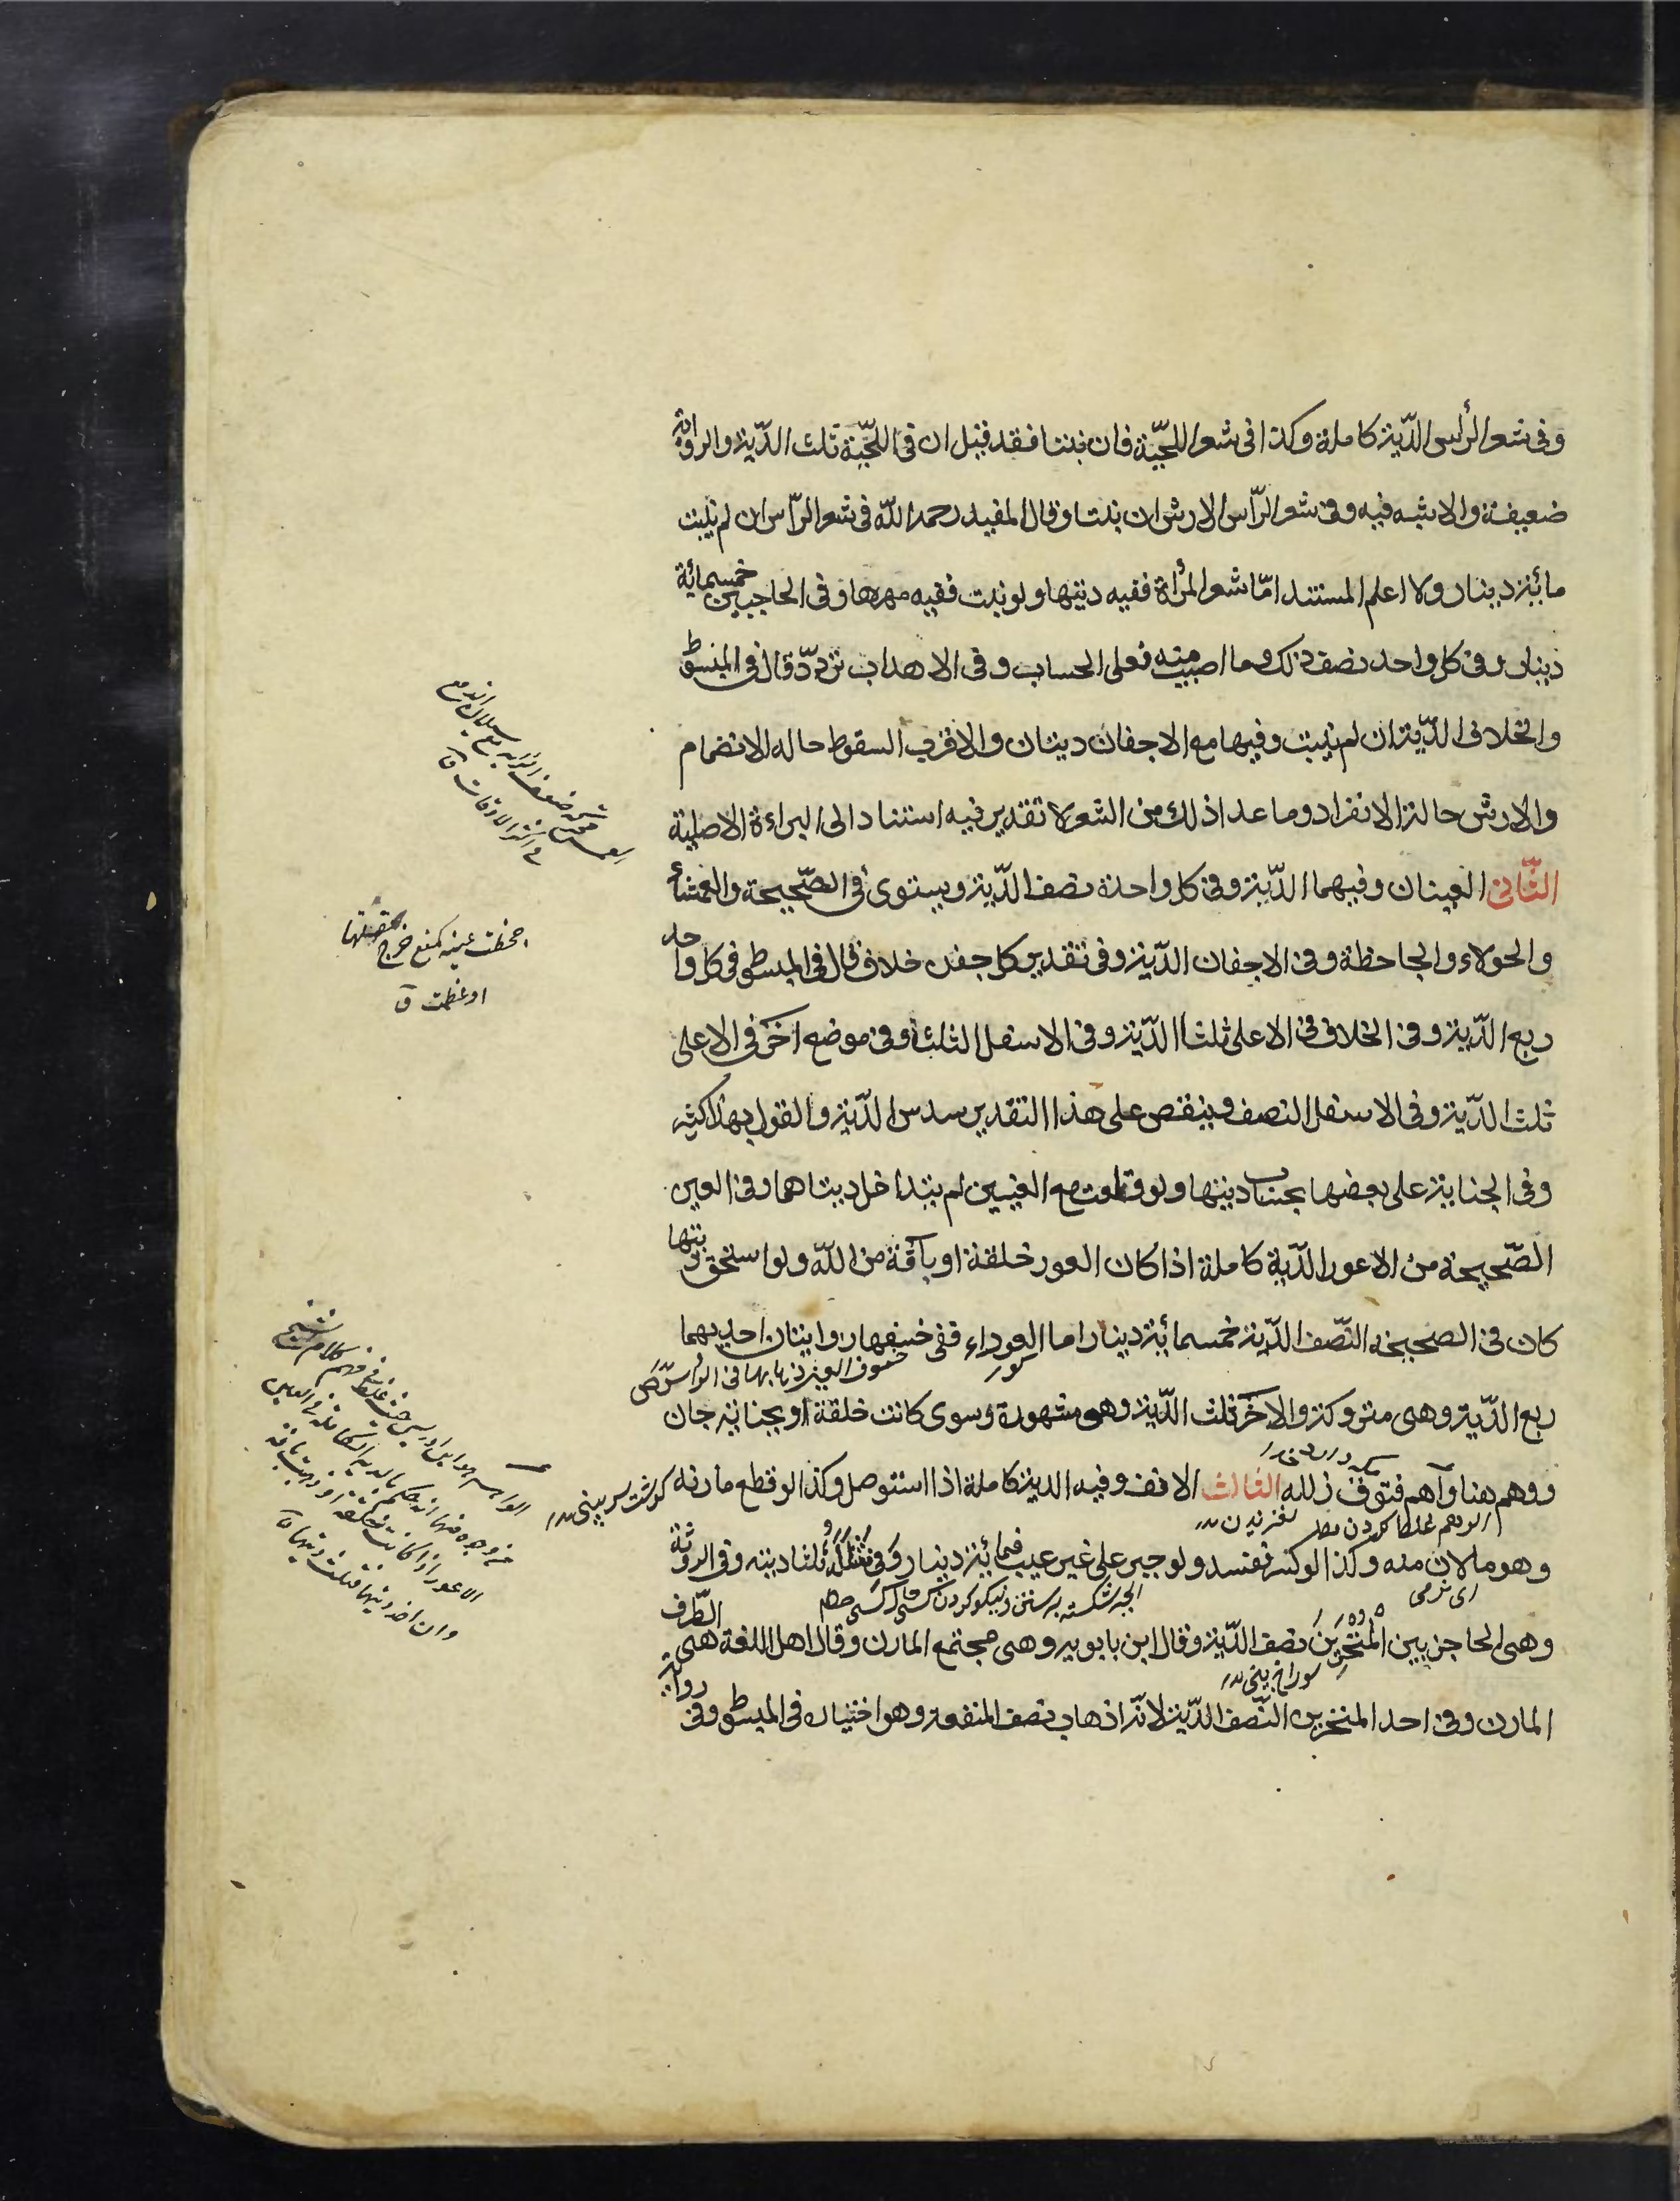 وفى شعر الرأس الدّية كاملة وكذا فى شعر اللحيّة فان نبتا فقد قيل ان فى اللحّية ثلث الدّية والرواية
ضعيفة والاشبه فيه وفى شعر الرّاس الارش ان نبتا وقال المفيد رحمه اللّه فى شعر الرّاس ان لم ينبت
مائة دينار ولا اعلم المستند امّا شعر المرأة ففيه ديتها ولو نبت ففيه مهرها وفى الحاجبين خمسمائة
دينار وفى كل واحد نصف ذلك وما اصيب منه فعلى الحساب وفى الاهداب تردّد قال فى المبسوط
والخلاف الدّية ان لم ينبت وفيها مع الاجفان ديتان والاقرب السقوط حاله الانضمام
والارش حالة الانفراد وما عدا ذلك من الشعر لا تقدير فيه استنادا الى البراءة الاصلية
الثّانى العينان وفيهما الدّية وفى كل واحدة نصف الدّية ويستوى فى الصّحيحة والعمشاء
والحولاء والجاحظة وفى الاجفان الدّية وفى تقدير كل جفن خلاف قال فى المبسوط فى كل واحد
ربع الدّية وفى الخلاف فى الاعلى ثلثا الدّية وفى الاسفل الثلث وفى موضع اخر فى الاعلى
ثلث الدّية وفى الاسفل النصف وينقص على هذا التقدير سدس الدّية والقول بهذا كثير
وفى الجناية على بعضها بحساب ديتها ولو قلعت مع العينين لم يتداخل ديتاهما وفى العين
الصّحيحة من الاعور الدّية كاملة اذا كان العور خلقة او بآفة من اللّه ولو استحق ديتها
كان فى الصحيحة النّصف الدّية خمسمائة دينار اما العوراء ففى خسفها روايتان احديهما
ربع الدّية وهى متروكة والاخرى ثلث الدّية وهى مشهورة وسوى كانت خلقة او بجناية جان
ووهم هنا وآهم فتوقّ زلله الثالث الانف وفيه الدية كاملة اذا استوصل وكذا لو قطع مارنه
وهو ما لان منه وكذا لو كسر ففسد ولو جبر على غير عيب فمائة دينار وفى شلله ثلثا ديته وفى الروثة
وهى الحاجز بين المنخرين نصف الدّية وقال ابن بابويه وهى مجتمع المارن وقال اهل اللغة هى الطّرف
المارن وفى احد المنخرين النّصف الدّية لانّه اذهاب نصف المنفعة وهو اختياره فى المبسوط وفى رواية
جحظت عينه كمنع خرج مقلتها
او عظمت ق
كور
خسوف العين ذهابها فى الراس ص
گوشت سر بينى
لغزيدن
اى نرمى
سوراخ بينى